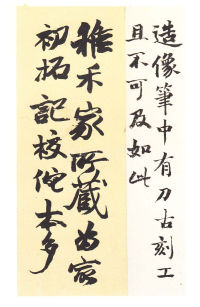 造像筆中有刀古刻工
且不可及如此
稚禾家所藏为宸
初拓記校佗本多